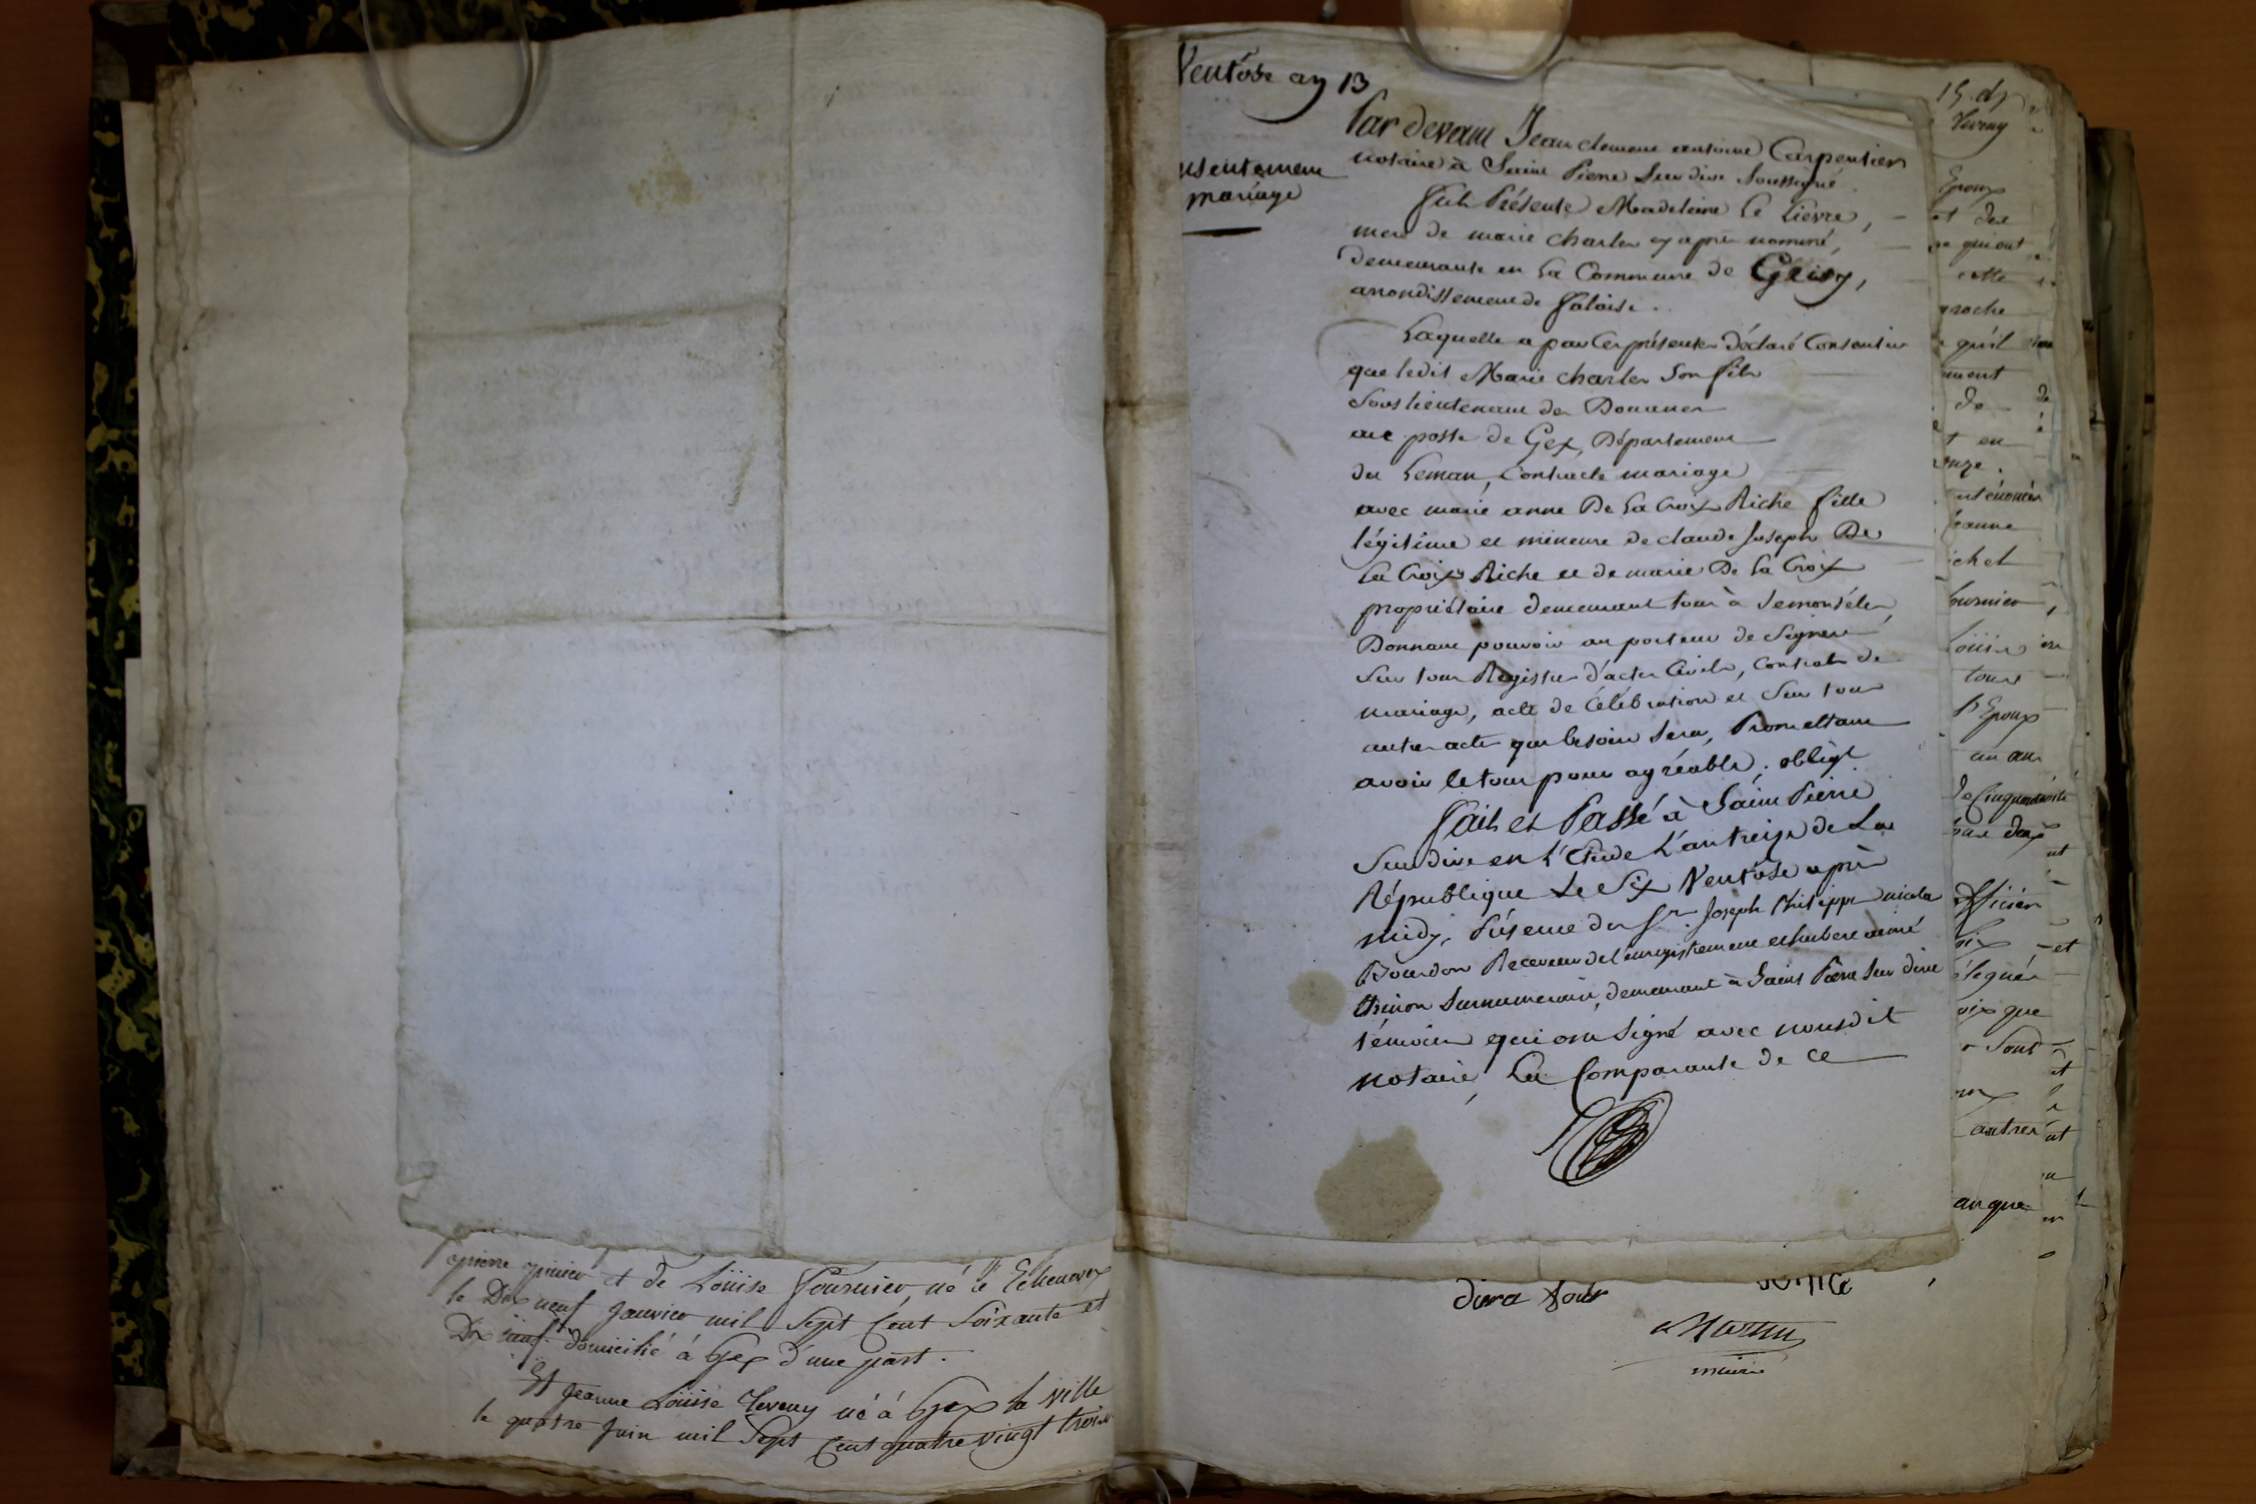 pierre et de Loüise Fournier, né à Echenevex
le Dix neuf Janvier mil Sept Cent Soixante et
Dix domicilié à Gex d'une part.
Et Jeanne Loüise né à Gex la ville
le quatre Juin mil Sept Cent quatre vingt trois
Ventôse an 13
nsentement
mariage
Par devant Jean clement antoine Carpentier
notaire à Saint Pierre Sur dive Soussigné
Fut Présente Madeleine Le Lievre,
mere de marie charles cy après nommé,
demeurante en La Commune de Grisy,
arrondissement de falaise.
Laquelle a par Ces présentes déclaré Consentir
que ledit Marie charles Son fils
Sous lieutenant des Douanes
au poste de Gex, Département
du Leman, Contracte mariage
avec marie anne De La Croix Riche fille
légitime et mineure de claude Joseph De
La Croix Riche et de marie De La Croix
propriétaire demeurant tous à
Donnant pouvoir au porteur de Signer
Sur tous Registres d'actes Civils, Contrats de
mariage, acte de Célébration et Sur tous
autres actes que besoin Sera, Promettant
avoir le tout pour agréable. obligt
Fait et Passé à Saint Pierre
Sur dive en L'Etude L'an treize de La
République Le Six Ventôse après
midy, Présence des Srs Joseph Philippe nicolas
Bourdon Receveur de l'enregistrement et aimé
Surnumeraire, demeurant à Saint Pierre Sur dive
témoins qui ont Signé avec nousdit
notaire, La Comparante de ce
Martin
maire
15
Epoux
et des
qui ont
cette
proche
qu'il
ment
de
et en
onze.
anne
ichel
ournier,
Loüise
tous
Epoux
un an
de Cinquante
Officier
et
élégués
oix que
Sous
autres
anque